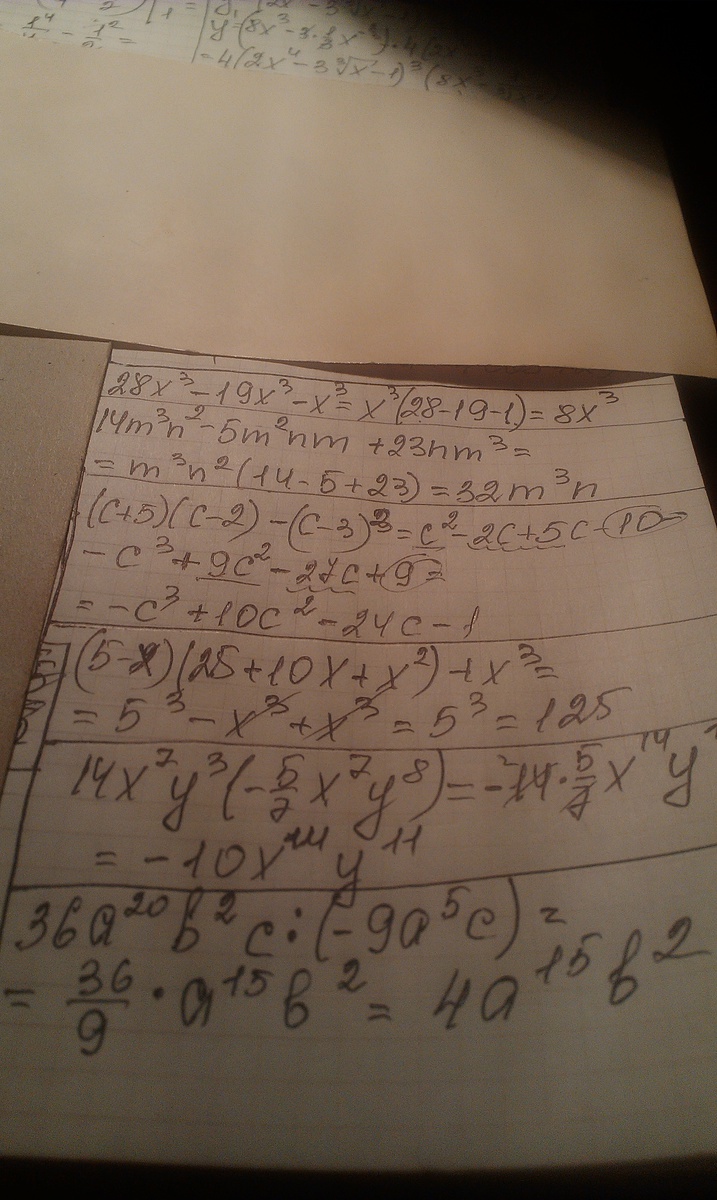 y=(8x³-3·⅓x
=4(2x⁴-3∛x-1)³(8x³
28x³-19x³-x³=x³(28-19-1)=8x³
14m³n²-5m²nm+23nm³=
=m³n²(14-5+23)=32m³n
(c+5)(c-2)-(c-3)³=c²-2c+5c-10-
-c³+9c²-27c+9=
=-c³+10c²-24c-1
(5-x)(25+10x+x²)+x³=
=5³-x³+x³=5³=125
14x⁷y³(-5/7x⁷y⁸)=-14·5/7x¹⁴y
=-10x¹⁴y¹¹
36a²⁰b²c:(-9a⁵c)=
=36/9·a¹⁵b²=4a¹⁵b²